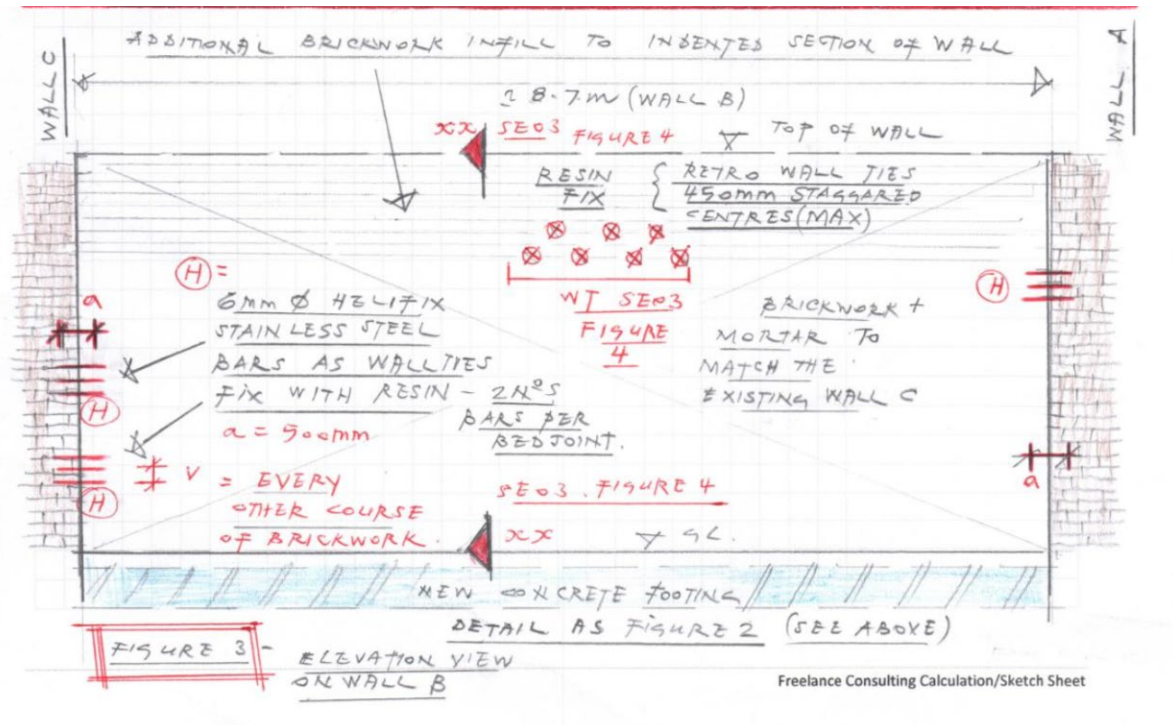 ADDITIONAL BRICKWORK INFILL TO INDENTED SECTION OF WALL
WALL C
WALL A
8.7m (WALL B)
xx SE03 FIGURE 4
TOP OF WALL
RESIN
FIX
RETRO WALL TIES
450mm STAGGARED
CENTRES (MAX)
H =
6mm Ø HELIFIX
STAINLESS STEEL
BARS AS WALL TIES
FIX WITH RESIN - 2NºS
BARS PER
BEDJOINT.
a = 500mm
a
H
H
V = EVERY
OTHER COURSE
OF BRICKWORK.
WT SE03
FIGURE
4
BRICKWORK +
MORTAR TO
MATCH THE
EXISTING WALL C
H
a
SE03. FIGURE 4
xx
GL.
NEW CONCRETE FOOTING
DETAIL AS FIGURE 2 (SEE ABOVE)
FIGURE 3 -
ELEVATION VIEW
ON WALL B
Freelance Consulting Calculation/Sketch Sheet